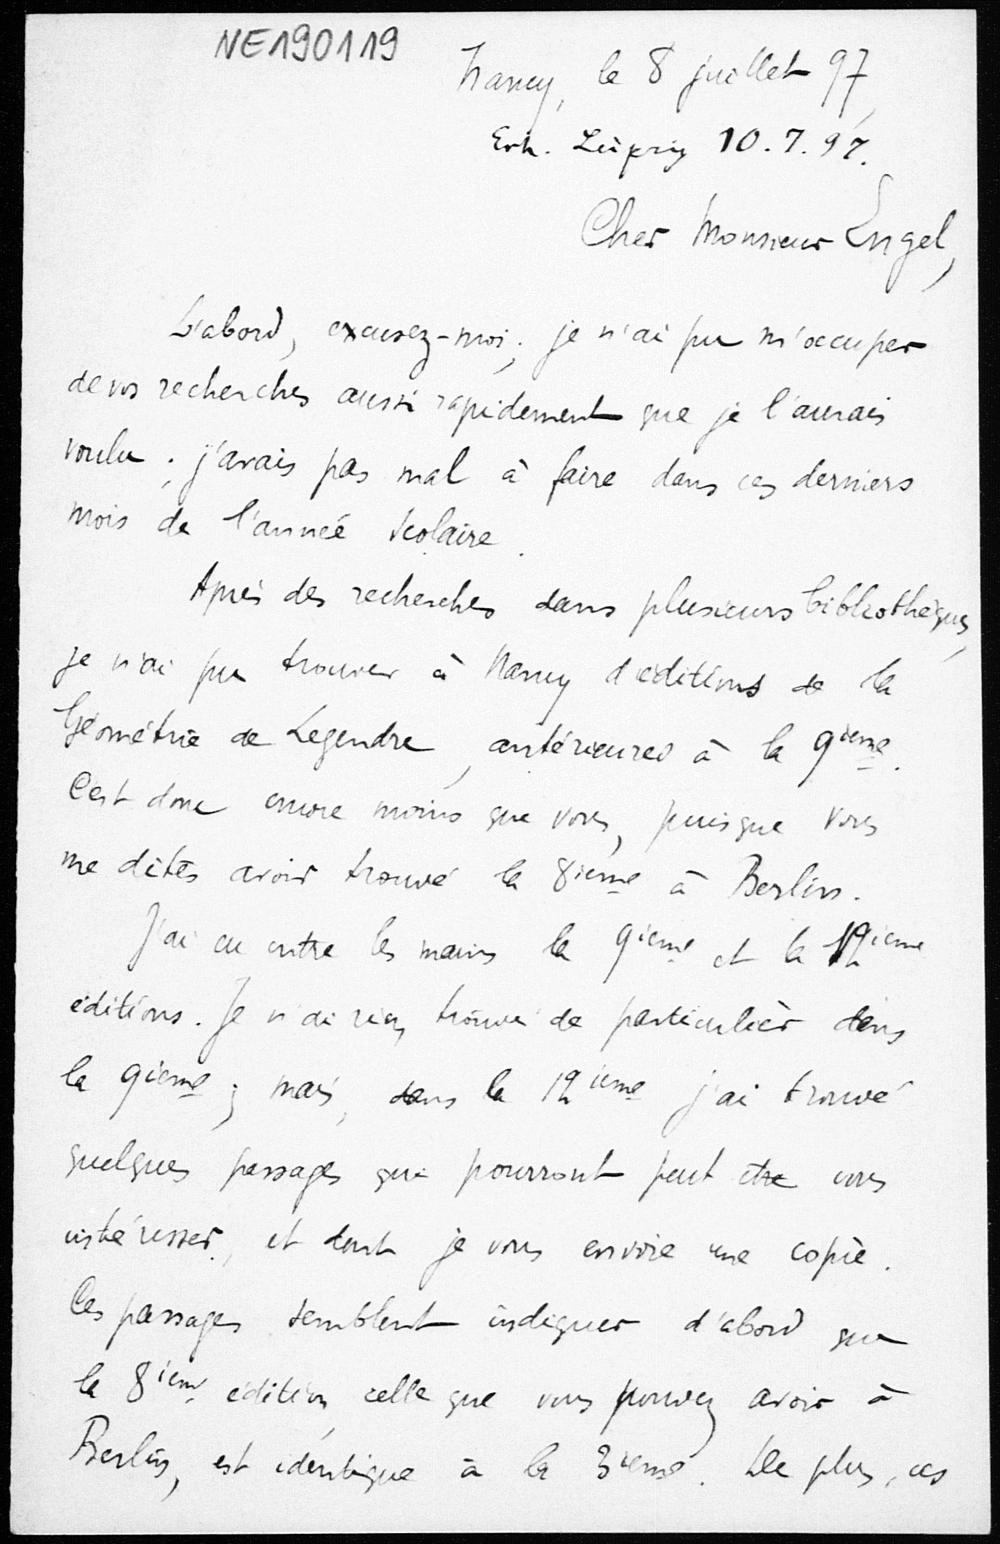 NE190119
Nancy, le 8 juillet 97,
Erh. Leipzig 10.7.97.
Cher Monsieur Engel,
D'abord, excusez-moi; je n'ai pu m'occuper
de vos recherches aussi rapidement que je l'aurais
voulu; j'avais pas mal à faire dans ces derniers
mois de l'année scolaire.
Après des recherches dans plusieurs bibliothèques,
je n'ai pu trouver à Nancy d'éditions de la
Géométrie de Legendre, antérieures à la 9ième.
C'est donc encore moins que vous, puisque vous
me dites avoir trouvé la 8ième à Berlin.
J'ai eu entre les mains la 9ième et la 12ième
éditions. Je n'ai rien trouvé de particulier dans
la 9ième; mais, dans la 12ième j'ai trouvé
quelques passages qui pourront peut être vous
intéresser, et dont je vous envoie une copie.
Ces passages semblent indiquer d'abord que
la 8ième édition, celle que vous pouvez avoir à
Berlin, est identique à la 3ième. De plus, ces